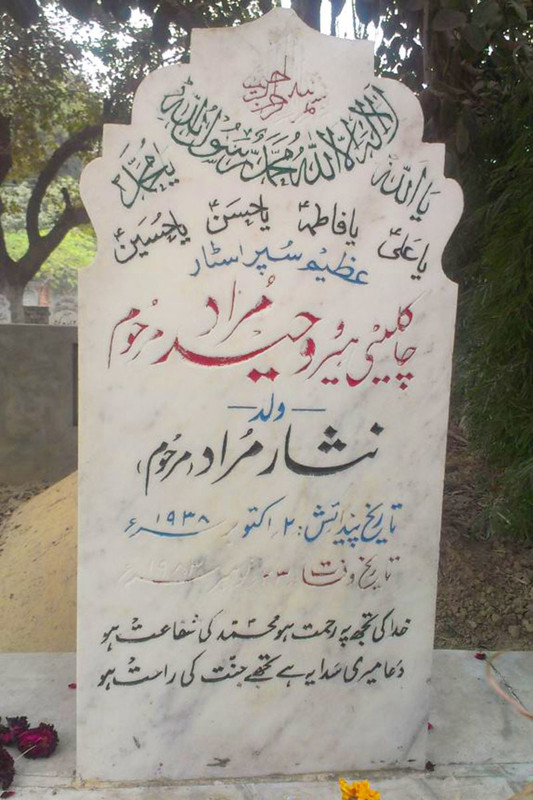 بسم اللہ الرحمن الرحیم
لا الہ الا اللہ محمد رسول اللہ
یا اللہ یا محمد
یا علیؑ یا فاطمہؑ یا حسنؑ یا حسینؑ
عظیم سُپر اسٹار
چاکلیٹی ہیرو وحید مُراد مرحُوم
ولد
نثار مُراد (مرحُوم)
تاریخ پیدائش: ۲ اکتوبر سنہ ۱۹۳۸ء
تاریخ وفات ۱۹۸۳ء
خدا کی تجھ پہ رحمت ہو محمّد کی شفاعت ہو
دُعا میری سَدا یہ ہے تجھے جنّت کی راحت ہو